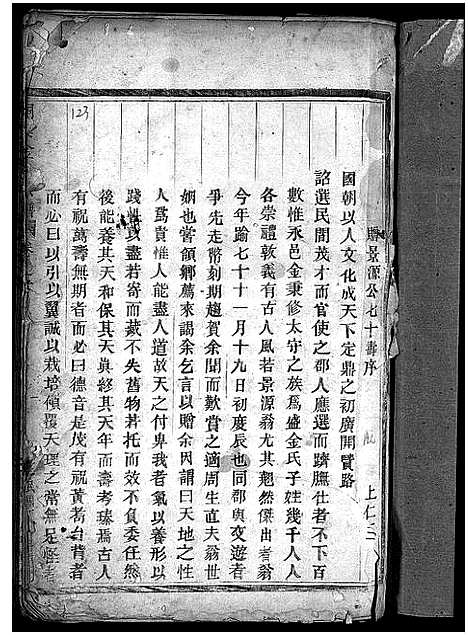 景源公七十壽序
上仁三
國朝以人文化成天下定鼎之初廣開賢路
詔選民間茂才而官使之郡人應選而躋膴仕者不下百
數惟永邑金秉修太守之族爲盛金氏子姓幾千人人
各崇禮敦義有古人風若景源翁尤其翹然傑出者翁
今年踰七十十一月十九日初度辰也同郡與交遊者
爭先走幣刻期趨賀余聞而歎賞之適周生直夫翁世
姻也嘗領鄉薦來謁余乞言以贈余因謂曰天地之性
人爲貴惟人能盡人道故天之付卑我者氣以養形以
踐性以盡若寄而藏不失舊物若托而效不負委任然
後能養其天和保其天眞終其天年而壽考臻焉古人
有祝萬壽無期者而必曰德音是茂有祝黃耇台背者
而必曰以引以翼誠以栽培傾覆天理之常無足怪者
123